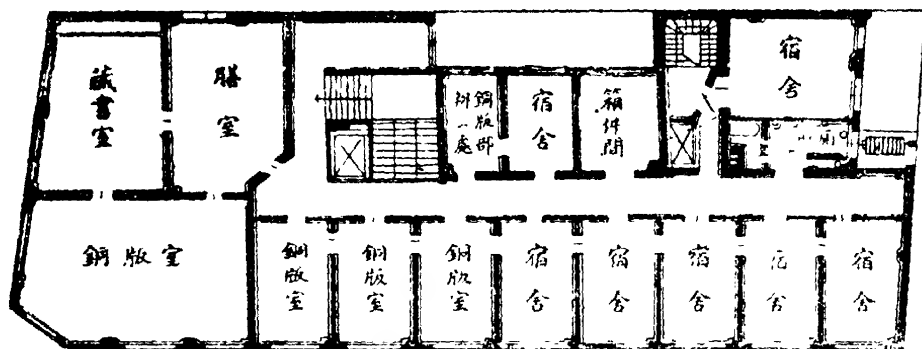 藏書室
膳室
銅版部
辦公處
宿舍
箱件間
宿舍
銅版室
銅版室
銅版室
銅版室
宿舍
宿舍
宿舍
宿舍
宿舍